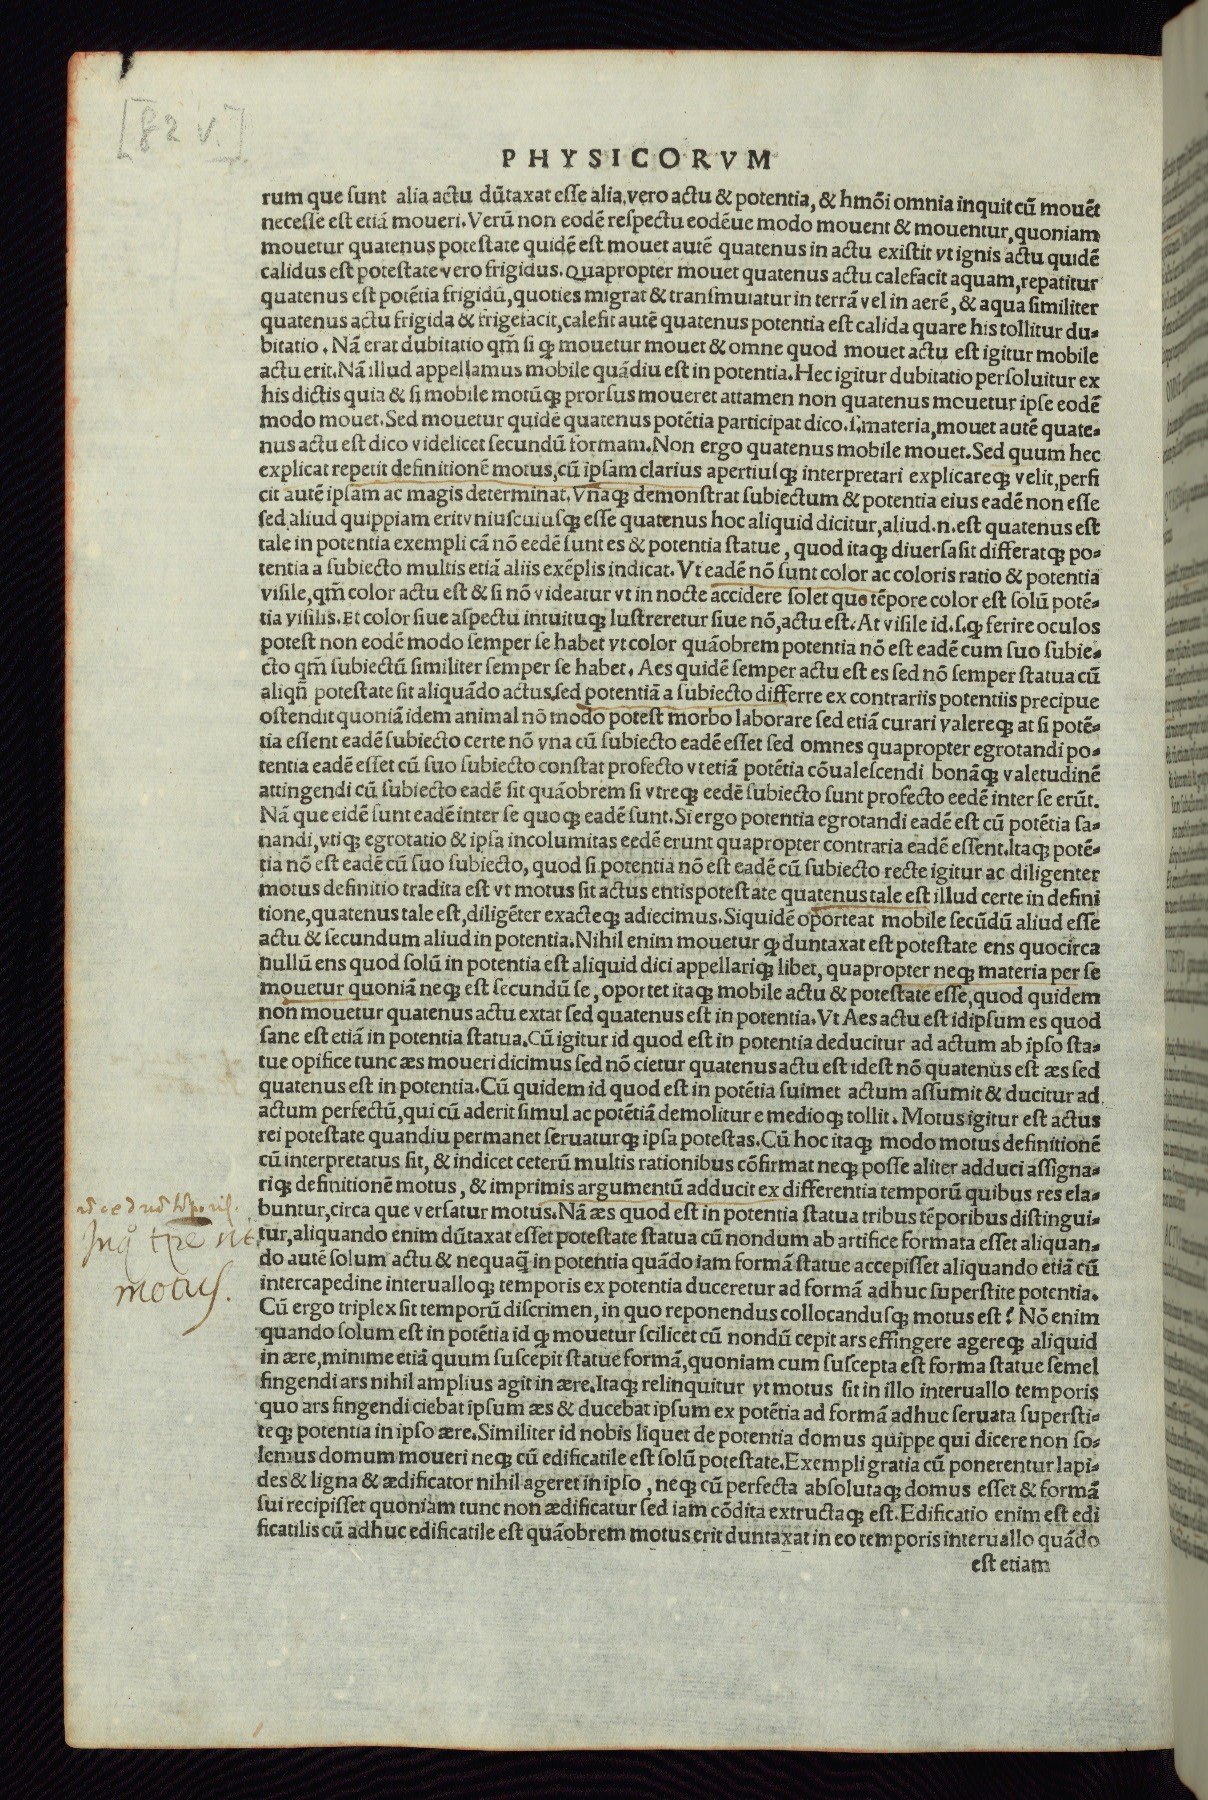 [82 v.]
PHYSICORVM
rum que sunt alia actu dūtaxat esse alia, vero actu & potentia, & hmōi omnia inquit cū mouēt
necesse est etiā moueri. Verū non eodē respectu eodēue modo mouent & mouentur, quoniam
mouetur quatenus potestate quidē est mouet autē quatenus in actu existit vt ignis actu quidē
calidus est potestate vero frigidus. Quapropter mouet quatenus actu calefacit aquam, repatitur
quatenus est potētia frigidū, quoties migrat & transmutatur in terrā vel in aerē, & aqua similiter
quatenus actu frigida & frigefacit, calefit autē quatenus potentia est calida quare his tollitur du-
bitatio. Nā erat dubitatio qm̄ si qꝫ mouetur mouet & omne quod mouet actu est igitur mobile
actu erit. Nā illud appellamus mobile quādiu est in potentia. Hec igitur dubitatio persoluitur ex
his dictis quia & si mobile motūqꝫ prorsus moueret attamen non quatenus mouetur ipse eodē
modo mouet. Sed mouetur quidē quatenus potētia participat dico .s. materia, mouet autē quate-
nus actu est dico videlicet secundū formam. Non ergo quatenus mobile mouet. Sed quum hec
explicat repetit definitionē motus, cū ipsam clarius apertiusqꝫ interpretari explicareqꝫ velit, perfi
cit autē ipsam ac magis determinat. Vnaqꝫ demonstrat subiectum & potentia eius eadē non esse
sed aliud quippiam erit vniuscuiusqꝫ esse quatenus hoc aliquid dicitur, aliud .n. est quatenus est
tale in potentia exempli cā nō eedē sunt es & potentia statue, quod itaqꝫ diuersa sit differatqꝫ po-
tentia a subiecto multis etiā aliis exēplis indicat. Vt eadē nō sunt color ac coloris ratio & potentia
visile, qm̄ color actu est & si nō videatur vt in nocte accidere solet quo tēpore color est solū potē-
tia visilis. Et color siue aspectu intuituqꝫ lustreretur siue nō, actu est. At visile id .s. qꝫ ferire oculos
potest non eodē modo semper se habet vt color quāobrem potentia nō est eadē cum suo subie-
cto qm̄ subiectū similiter semper se habet. Aes quidē semper actu est es sed nō semper statua cū
aliqñ potestate sit aliquādo actus, sed potentiā a subiecto differre ex contrariis potentiis precipue
ostendit quoniā idem animal nō modo potest morbo laborare sed etiā curari valereqꝫ at si potē-
tia essent eadē subiecto certe nō vna cū subiecto eadē esset sed omnes quapropter egrotandi po-
tentia eadē esset cū suo subiecto constat profecto vt etiā potētia cōualescendi bonāqꝫ valetudinē
attingendi cū subiecto eadē sit quāobrem si vtreqꝫ eedē subiecto sunt profecto eedē inter se erūt.
Nā que eidē sunt eadē inter se quoqꝫ eadē sunt. Si ergo potentia egrotandi eadē est cū potētia sa-
nandi, vtiqꝫ egrotatio & ipsa incolumitas eedē erunt quapropter contraria eadē essent. Itaqꝫ potē-
tia nō est eadē cū suo subiecto, quod si potentia nō est eadē cū subiecto recte igitur ac diligenter
motus definitio tradita est vt motus sit actus entis potestate quatenus tale est illud certe in defini
tione, quatenus tale est, diligēter exacteqꝫ adiecimus. Siquidē oporteat mobile secūdū aliud esse
actu & secundum aliud in potentia. Nihil enim mouetur qꝫ duntaxat est potestate ens quocirca
nullū ens quod solū in potentia est aliquid dici appellariqꝫ libet, quapropter neqꝫ materia per se
mouetur quoniā neqꝫ est secundū se, oportet itaqꝫ mobile actu & potestate esse, quod quidem
non mouetur quatenus actu extat sed quatenus est in potentia. Vt Aes actu est idipsum es quod
sane est etiā in potentia statua. Cū igitur id quod est in potentia deducitur ad actum ab ipso sta-
tue opifice tunc æs moueri dicimus sed nō cietur quatenus actu est idest nō quatenus est æs sed
quatenus est in potentia. Cū quidem id quod est in potētia suimet actum assumit & ducitur ad
actum perfectū, qui cū aderit simul ac potētiā demolitur e medioqꝫ tollit. Motus igitur est actus
rei potestate quandiu permanet seruaturqꝫ ipsa potestas. Cū hoc itaqꝫ modo motus definitionē
cū interpretatus sit, & indicet ceterū multis rationibus cōfirmat neqꝫ posse aliter adduci assigna-
riqꝫ definitionē motus, & imprimis argumentū adducit ex differentia temporū quibus res ela-
buntur, circa que versatur motus. Nā æs quod est in potentia statua tribus tēporibus distingui-
tur, aliquando enim dūtaxat esset potestate statua cū nondum ab artifice formata esset aliquan-
do autē solum actu & nequaq̄ in potentia quādo iam formā statue accepisset aliquando etiā cū
intercapedine interualloqꝫ temporis ex potentia duceretur ad formā adhuc superstite potentia.
Cū ergo triplex sit temporū discrimen, in quo reponendus collocandusqꝫ motus est? Nō enim
quando solum est in potētia id qꝫ mouetur scilicet cū nondū cepit ars effingere agereqꝫ aliquid
in ære, minime etiā quum suscepit statue formā, quoniam cum suscepta est forma statue semel
fingendi ars nihil amplius agit in ære. Itaqꝫ relinquitur vt motus sit in illo interuallo temporis
quo ars fingendi ciebat ipsum æs & ducebat ipsum ex potētia ad formā adhuc seruata supersti-
teqꝫ potentia in ipso ære. Similiter id nobis liquet de potentia domus quippe qui dicere non so-
lemus domum moueri neqꝫ cū edificatile est solū potestate. Exempli gratia cū ponerentur lapi-
des & ligna & ædificator nihil ageret in ipso, neqꝫ cū perfecta absolutaqꝫ domus esset & formā
sui recipisset quoniam tunc non ædificatur sed iam cōdita extructaqꝫ est. Edificatio enim est edi
ficatilis cū adhuc edificatile est quāobrem motus erit duntaxat in eo temporis interuallo quādo
est etiam
motus.